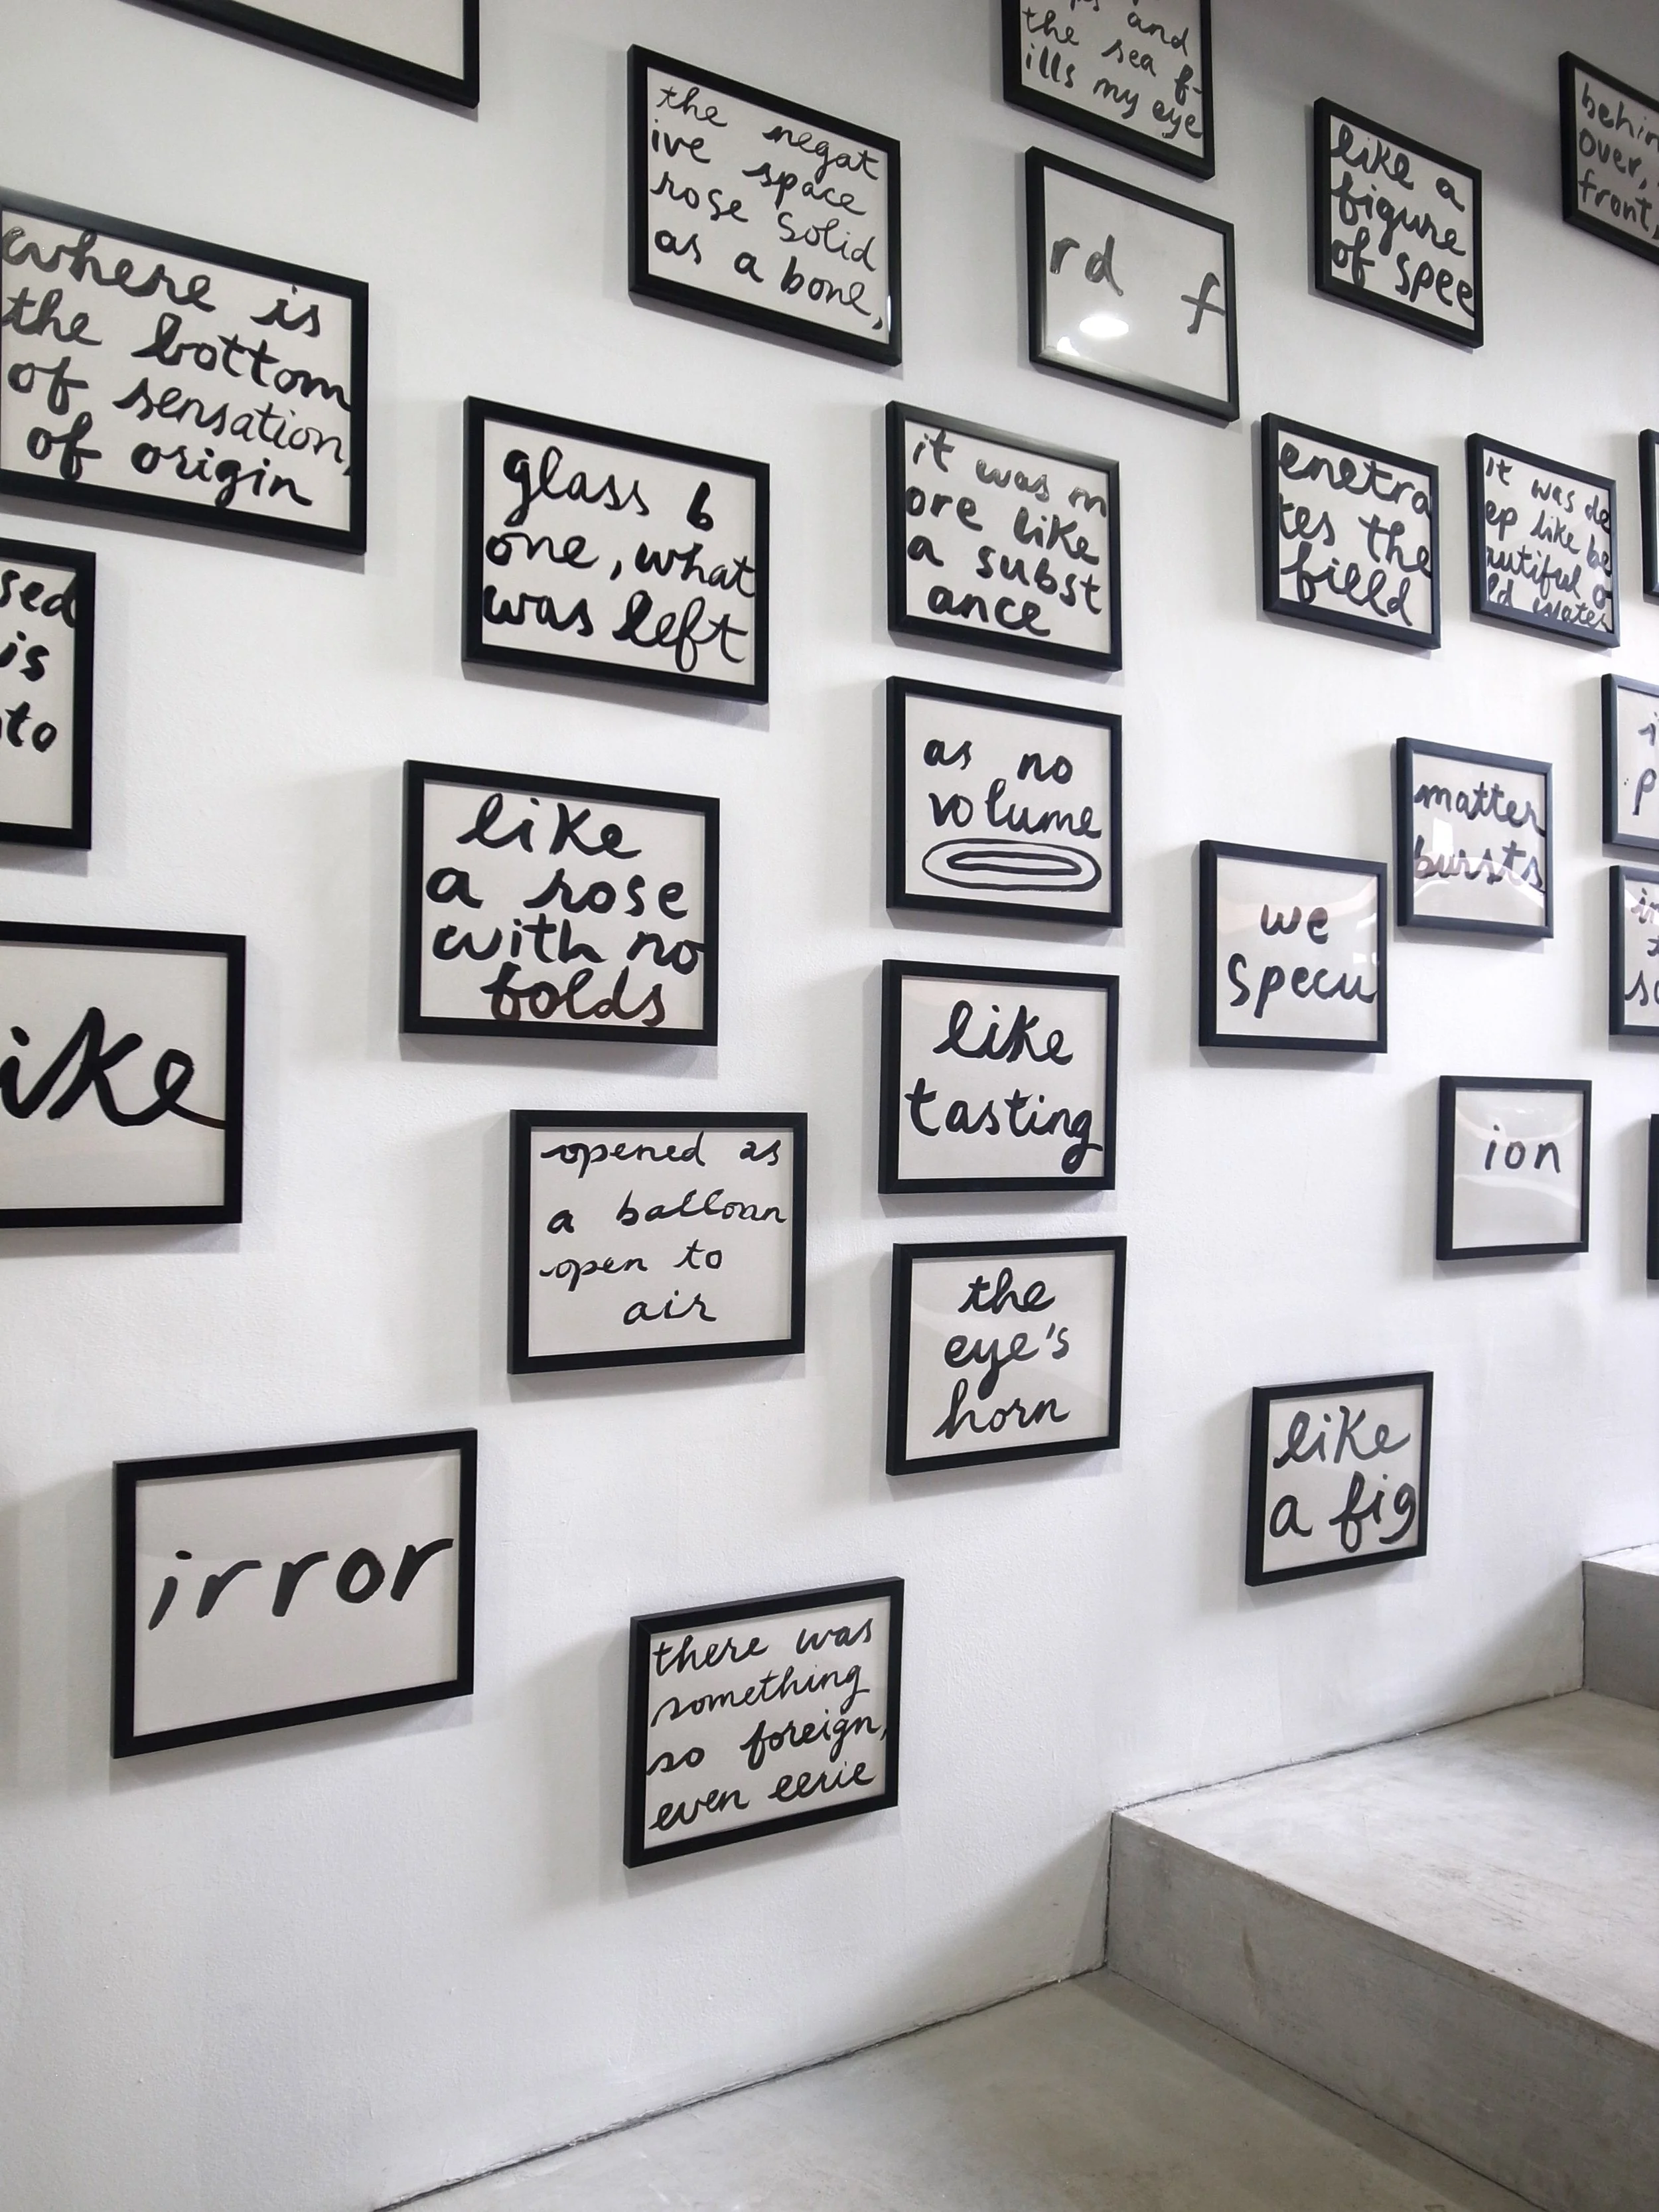 the negat
ive space
rose solid
as a bone,
and
the sea f-
ills my eye
rd f
like a
figure
of spee
over,
front,
where is
the bottom
of sensation,
of origin
glass b
one, what
was left
it was m
ore like
a subst
ance
enetra
tes the
field
it was de
ep like be
autiful o
ld
sed
is
to
like
a rose
with no
folds
as no
volume
matter
bursts
we
specu
ike
opened as
a balloon
open to
air
like
tasting
ion
the
eye's
horn
like
a fig
irror
there was
something
so foreign,
even eerie